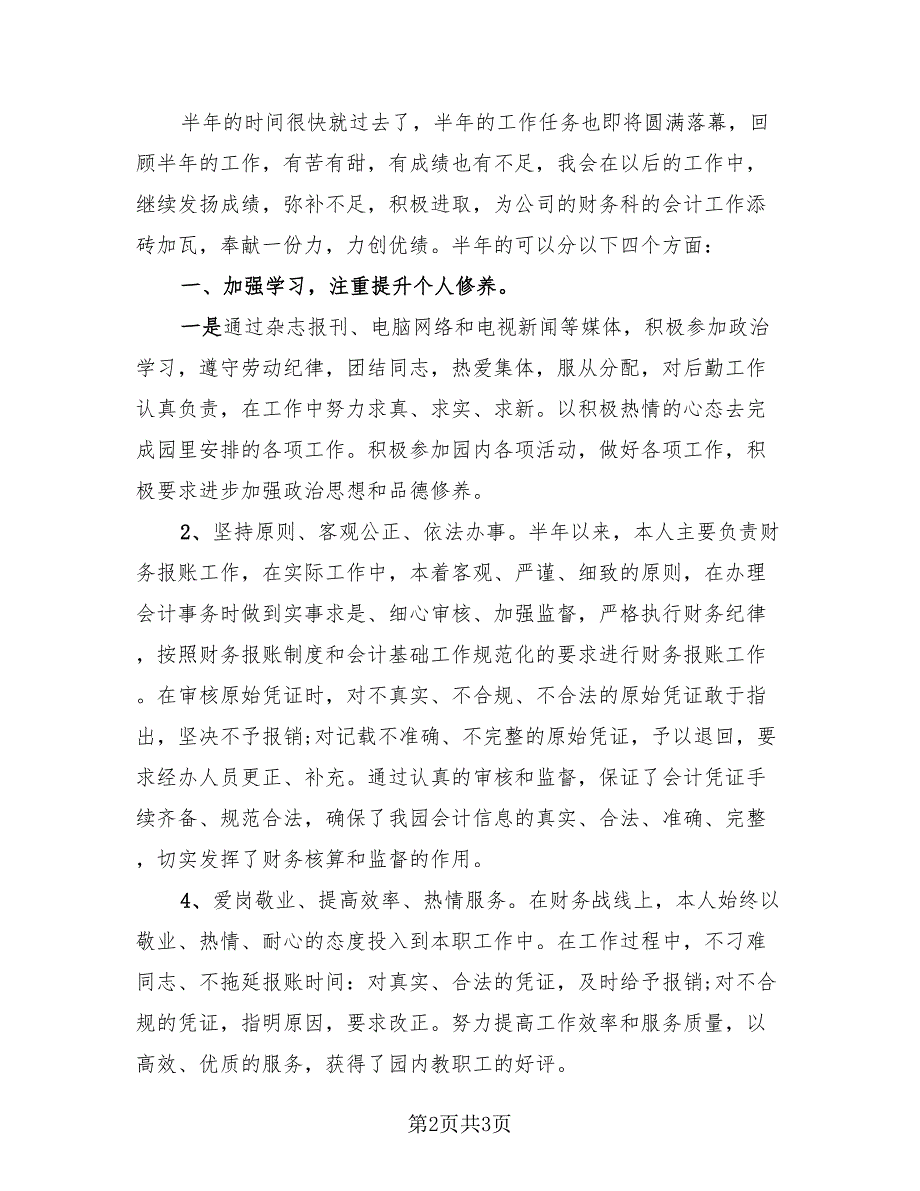 半年的时间很快就过去了，半年的工作任务也即将圆满落幕，回
顾半年的工作，有苦有甜，有成绩也有不足，我会在以后的工作中，
继续发扬成绩，弥补不足，积极进取，为公司的财务科的会计工作添
砖加瓦，奉献一份力，力创优绩。半年的可以分以下四个方面：
一、加强学习，注重提升个人修养。
一是通过杂志报刊、电脑网络和电视新闻等媒体，积极参加政治
学习，遵守劳动纪律，团结同志，热爱集体，服从分配，对后勤工作
认真负责，在工作中努力求真、求实、求新。以积极热情的心态去完
成园里安排的各项工作。积极参加园内各项活动，做好各项工作，积
极要求进步加强政治思想和品德修养。
2、坚持原则、客观公正、依法办事。半年以来，本人主要负责财
务报账工作，在实际工作中，本着客观、严谨、细致的原则，在办理
会计事务时做到实事求是、细心审核、加强监督，严格执行财务纪律
，按照财务报账制度和会计基础工作规范化的要求进行财务报账工作
。在审核原始凭证时，对不真实、不合规、不合法的原始凭证敢于指
出，坚决不予报销;对记载不准确、不完整的原始凭证，予以退回，要
求经办人员更正、补充。通过认真的审核和监督，保证了会计凭证手
续齐备、规范合法，确保了我园会计信息的真实、合法、准确、完整
，切实发挥了财务核算和监督的作用。
4、爱岗敬业、提高效率、热情服务。在财务战线上，本人始终以
敬业、热情、耐心的态度投入到本职工作中。在工作过程中，不刁难
同志、不拖延报账时间：对真实、合法的凭证，及时给予报销;对不合
规的凭证，指明原因，要求改正。努力提高工作效率和服务质量，以
高效、优质的服务，获得了园内教职工的好评。
第2页共3页